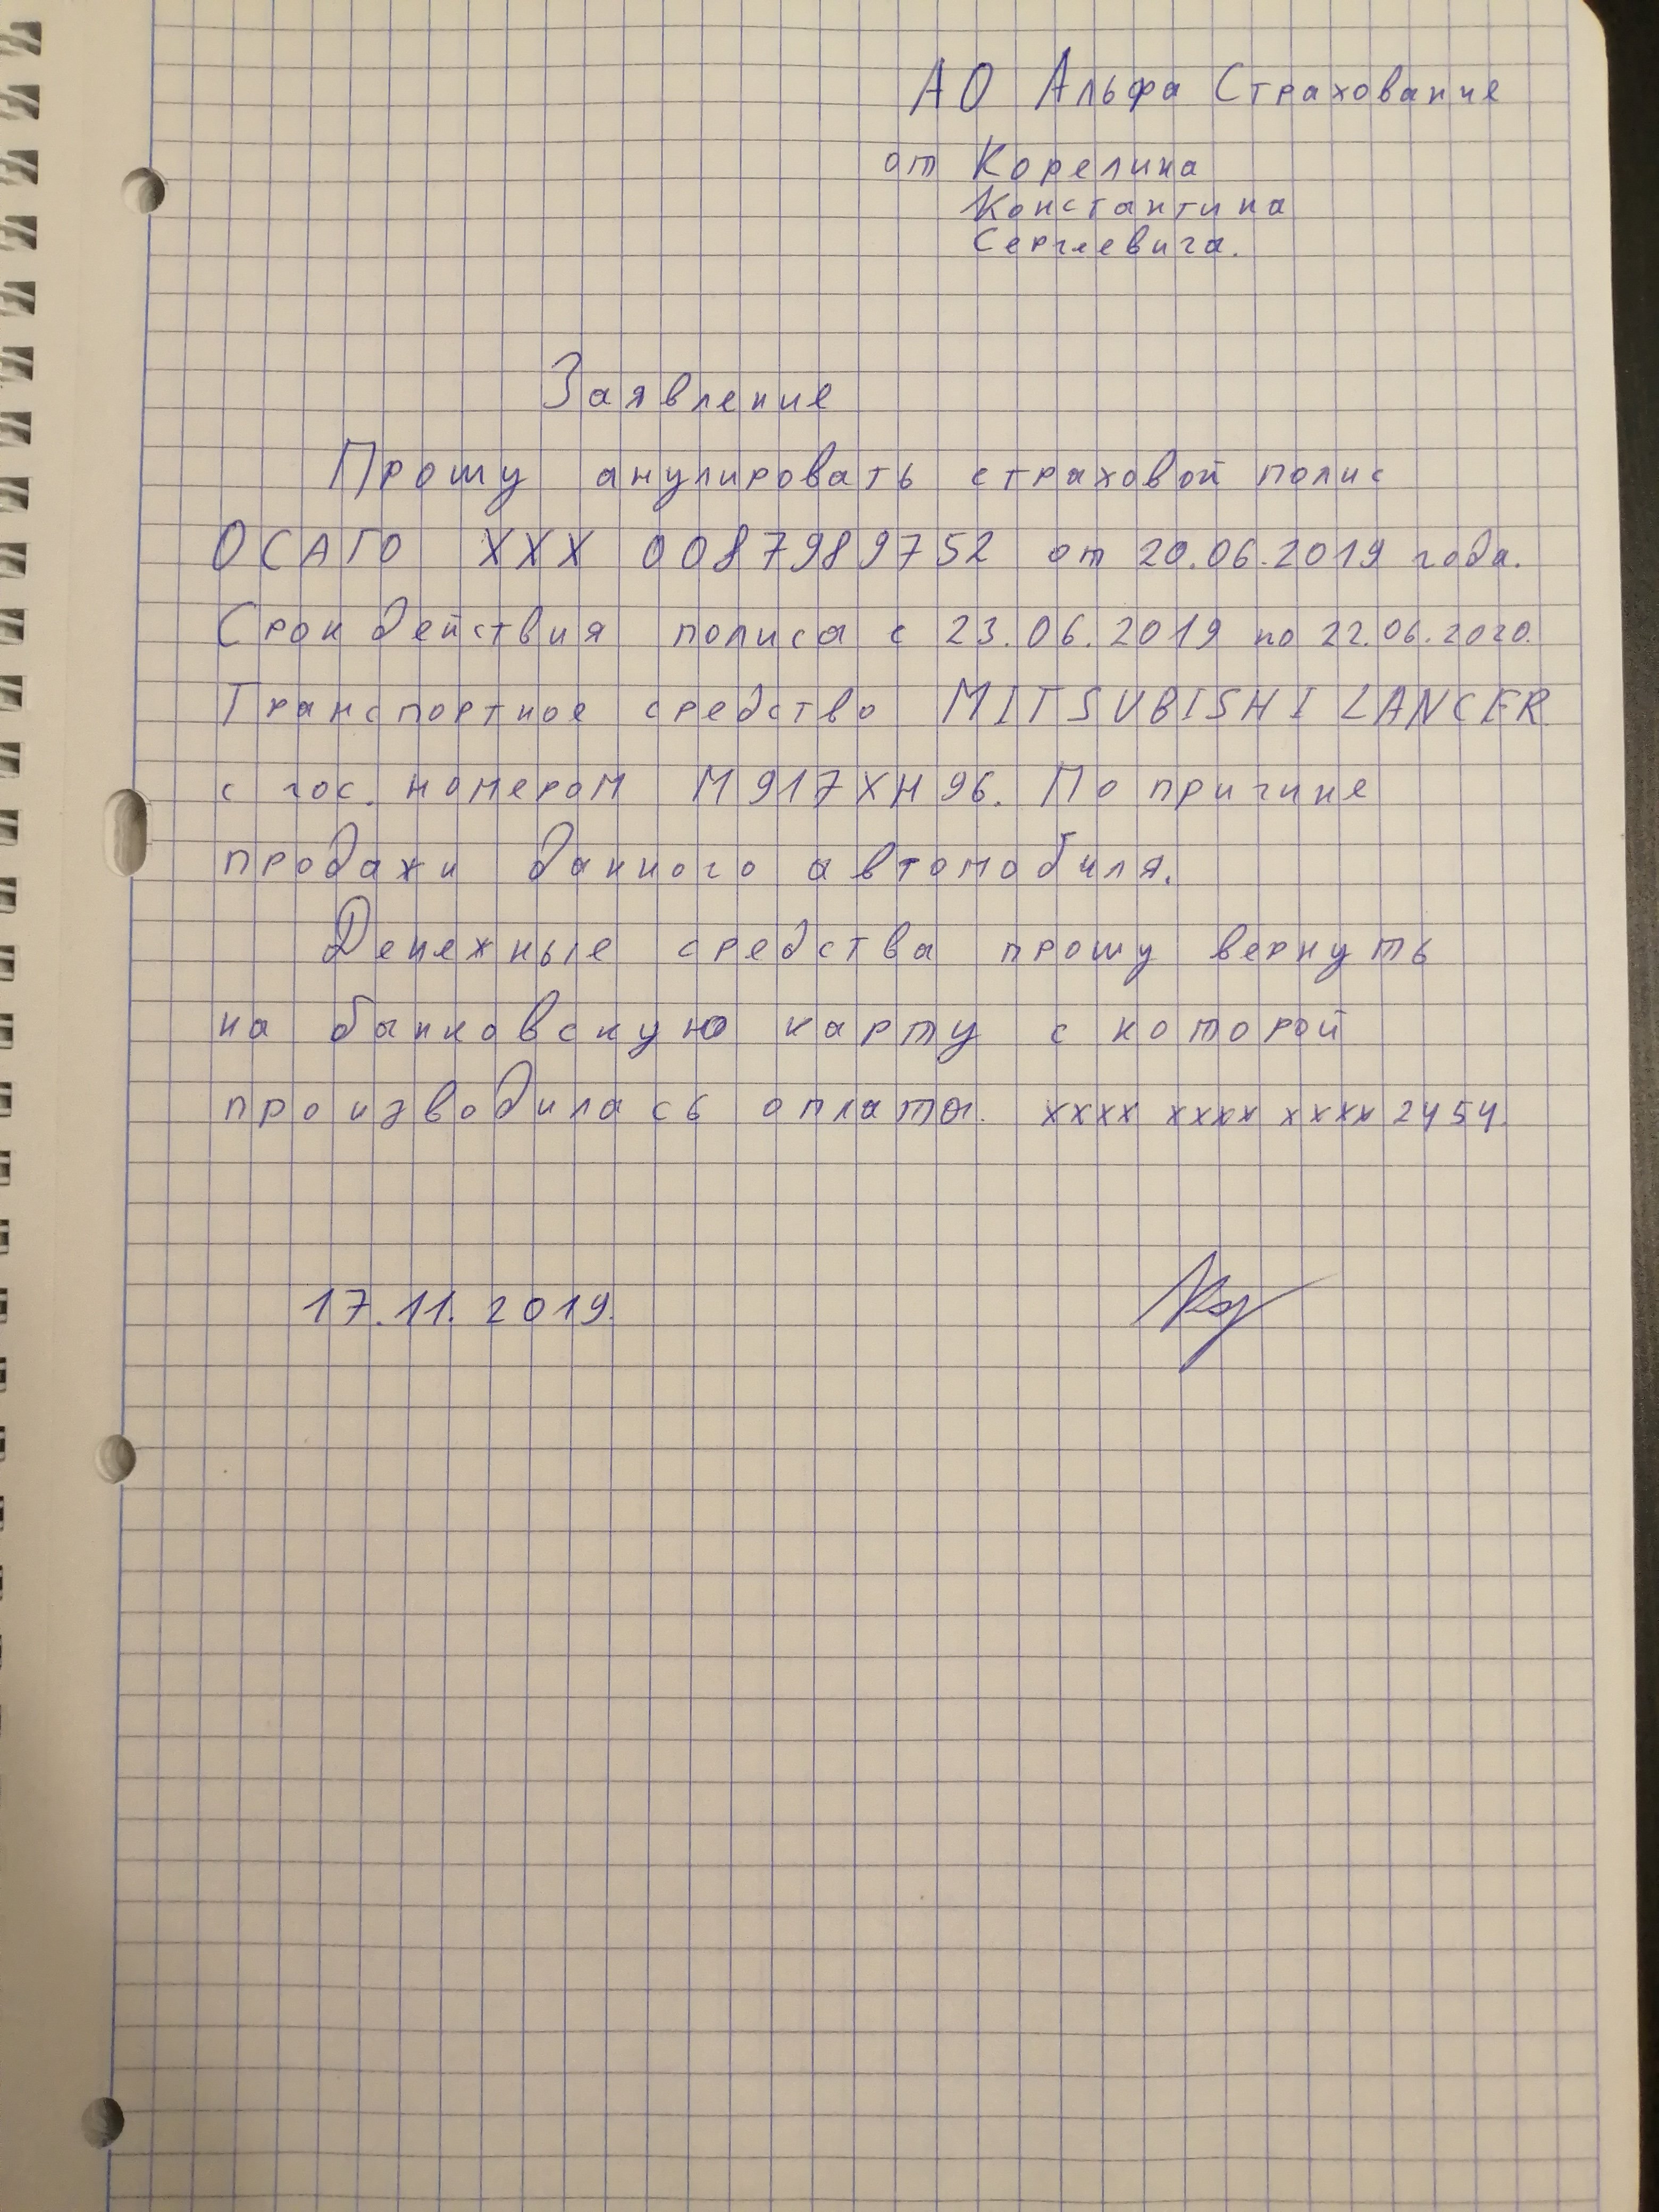 АО Альфа Страхование
от Корелина
Константина
Сергеевича.
Заявление
Прошу анулировать страховой полис
ОСАГО XXX 0087989752 от 20.06.2019 года.
Срок действия полиса с 23.06.2019 по 22.06.2020.
Транспортное средство MITSUBISHI LANCER
с гос. номером М917ХН96. По причине
продажи данного автомобиля.
Денежные средства прошу вернуть
на банковскую карту с которой
производилась оплата. хххх хххх хххх 2454.
17.11.2019.